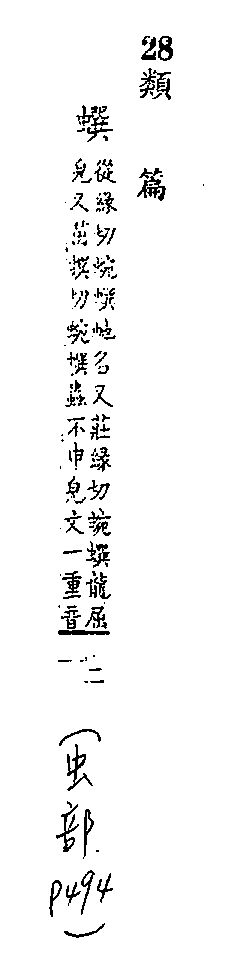 28類篇
蟤
從緣切蜿蟤虵名又莊緣切蜿蟤龍屈
皃又萬撰切蜿蟤蟲不申皃文一重音
一
二
(虫部 P494)